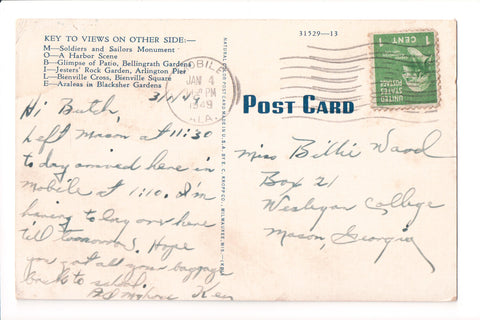 KEY TO VIEWS ON OTHER SIDE:—
M—Soldiers and Sailors Monument
O—A Harbor Scene
B—Glimpse of Patio, Bellingrath Gardens
I—Jesters' Rock Garden, Arlington Pier
L—Bienville Cross, Bienville Square
E—Azaleas in Blacksher Gardens
Hi Butch,
Left Macon at 11:30
today arrived here in
Mobile at 1:10. I'm
having to lay over here
till tomorrow. Hope
you got all your baggage
back to school.
Ken
31529—13
MOBILE
JAN 4
PM
1949
ALA.
1 CENT 1
UNITED
STATES
POSTAGE
POST CARD
Miss Billie Wood
Box 21
Wesleyan College
Macon, Georgia